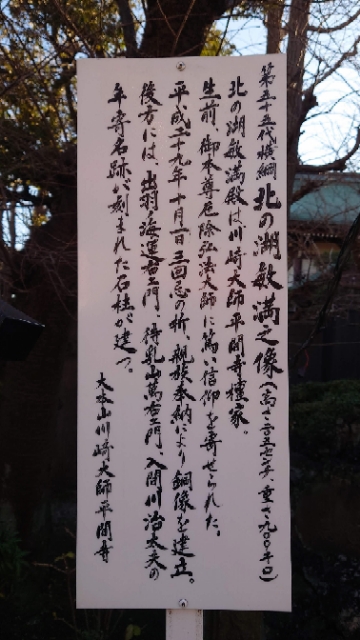 第五十五代横綱 北の湖敏満之像(高さ二三五センチ、重さ九〇〇キロ)
北の湖敏満殿は川崎大師平間寺檀家。
生前、御本尊厄除弘法大師に篤い信仰を寄せられた。
平成二十九年十月一日三回忌の折、親族奉納により銅像を建立。
後方には、出羽ノ海運右エ門、待乳山萬右エ門、入間川治太夫の
年寄名跡が刻まれた石柱が建つ。
大本山川崎大師平間寺